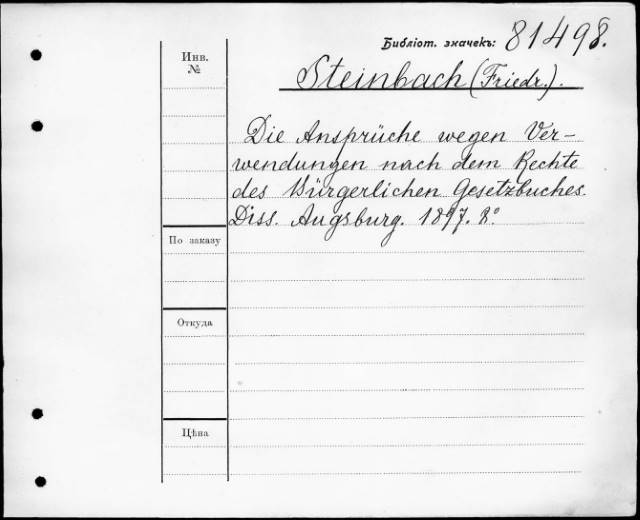 Библіот. значекъ: 81498.
Инв. №
Steinbach (Friedr.).
Die Ansprüche wegen Ver-
wendungen nach dem Rechte
des Bürgerlichen Gesetzbuches.
Diss. Augsburg. 1897. 8°.
По заказу
Откуда
Цѣна